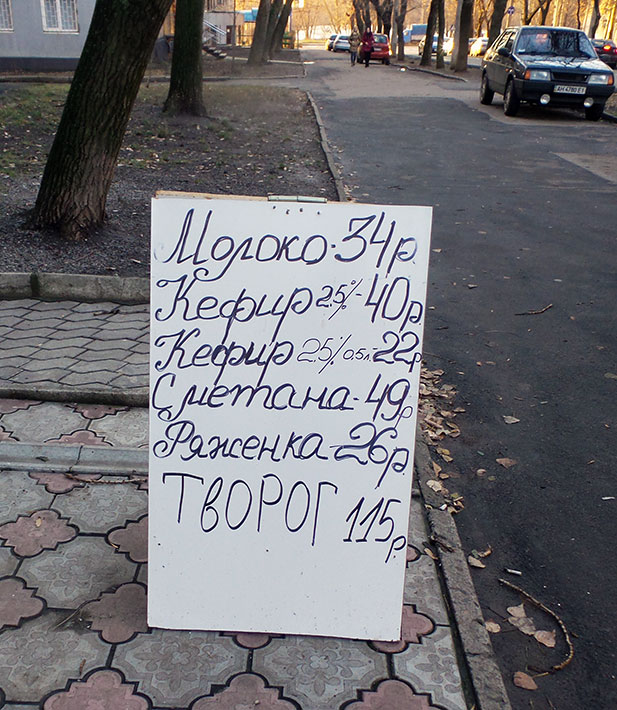 АН 4780 ЕІ
Молоко-34р.
Кефир 2.5%-40р.
Кефир 2.5% 0,5л-22р
Сметана-49р
Ряженка-26р.
ТВОРОГ 115р.